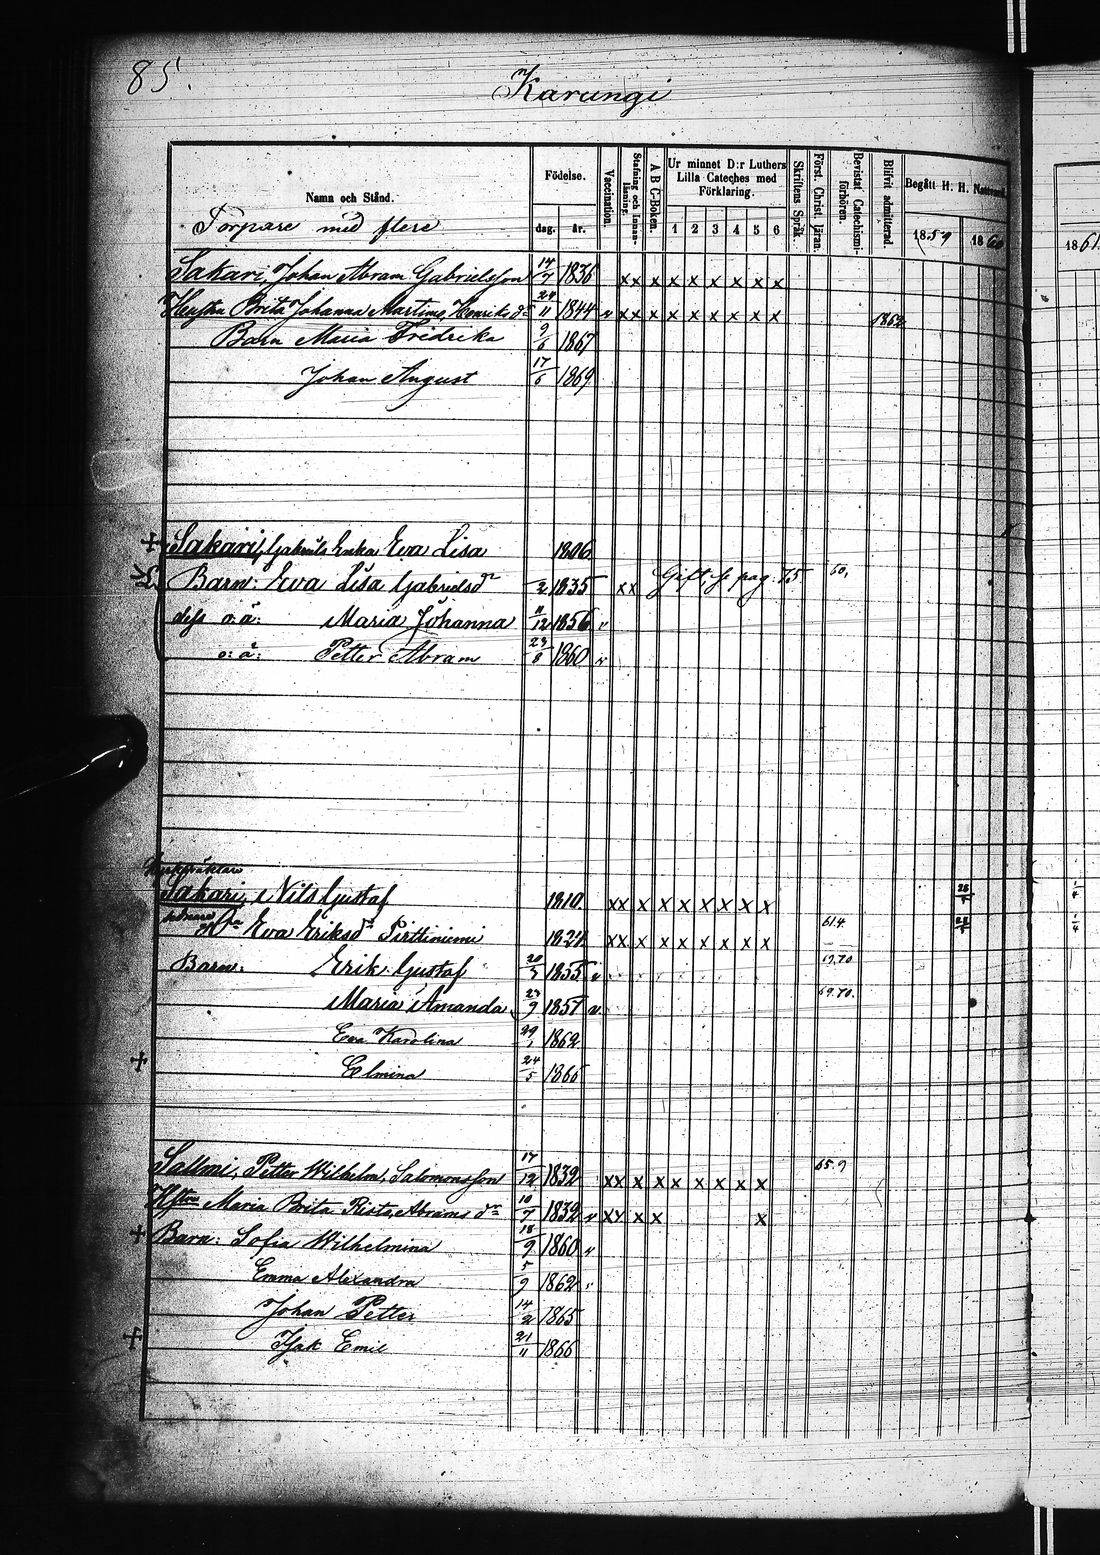 85.
Karungi
Namn och Stånd. Födelse. Vaccination. Stafning och Innan-läsning. A B C-Boken. Ur minnet D:r Luthers Lilla Cateches med Förklaring. Skriftens Språk. Först. Christ. läran. Bevistat Catechismi-förhören. Blifvit admitterad. Begått H. H. Nattvard.
Torpare med flere dag. år. 1 2 3 4 5 6 1859 1860 1861
Sakari, Johan Abram Gabrielsson 14/7 1836 x x x x x x x x x
Hustru Brita Johanna Martimo, Henriks dr 24/11 1844 v x x x x x x x x x 1862
Barn Maria Fredrika 9/6 1867
Johan August 17/5 1869
+ Sakari, Gabriels Enka Eva Lisa 1806
Barn: Eva Lisa Gabrielsdr /2 1835 x x Gift, se pag. 75 60,
dess o: ä: Maria Johanna 11/12 1856 v
o: ä: Petter Abram 23/8 1860 v
Sakari, Nils Gustaf 1810 x x x x x x x x x 28/
Eva Eriksdr Pirttiniemi 1824 x x x x x x x x x 61.4.
Barn: Erik Gustaf 20/3 1855 v 69.70
Maria Amanda 23/9 1857 v 69.70.
Eva Karolina 29/1 1862
+ Elmina 24/5 1865
Sallmi, Petter Wilhelm, Salomonsson 17/12 1832 x x x x x x x x x 65.9
Hstru Maria Brita Risto, Abrams dr 10/7 1832 v x x x x x
+ Barn: Sofia Wilhelmina 18/9 1860 v
Emma Alexandra 5/9 1862 v
Johan Petter 14/2 1865
+ Isak Emil 21/11 1866